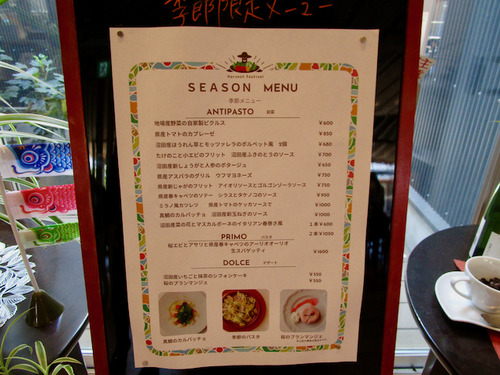 季節限定メニュー
Harvest Festival
SEASON MENU
季節メニュー
ANTIPASTO 前菜
地場産野菜の自家製ピクルス ¥600
県産トマトのカプレーゼ ¥850
沼田産ほうれん草とモッツァレラのポルペット風 2個 ¥680
たけのこと小エビのフリット 沼田産ふきのとうのソース ¥700
沼田産新しょうがと人参のポタージュ ¥650
県産アスパラのグリル ウフマヨネーズ ¥750
県産新じゃがのフリット アイオリソースとゴルゴンゾーラソース ¥750
県産春キャベツのソテー シラスとタケノコのソース ¥950
ミラノ風カツレツ 県産トマトのケッカソースで ¥1000
真鯛のカルパッチョ 沼田産新玉ねぎのソース ¥1000
沼田産菜の花とマスカルポーネのイタリアン春巻き風 1本 ¥600
2本 ¥1050
PRIMO パスタ
桜エビとアサリと県産春キャベツのアーリオオーリオ
生スパゲッティ ¥1600
DOLCE デザート
沼田産いちごと抹茶のシフォンケーキ ¥550
桜のブランマンジェ ¥550
真鯛のカルパッチョ 季節のパスタ 桜のブランマンジェ